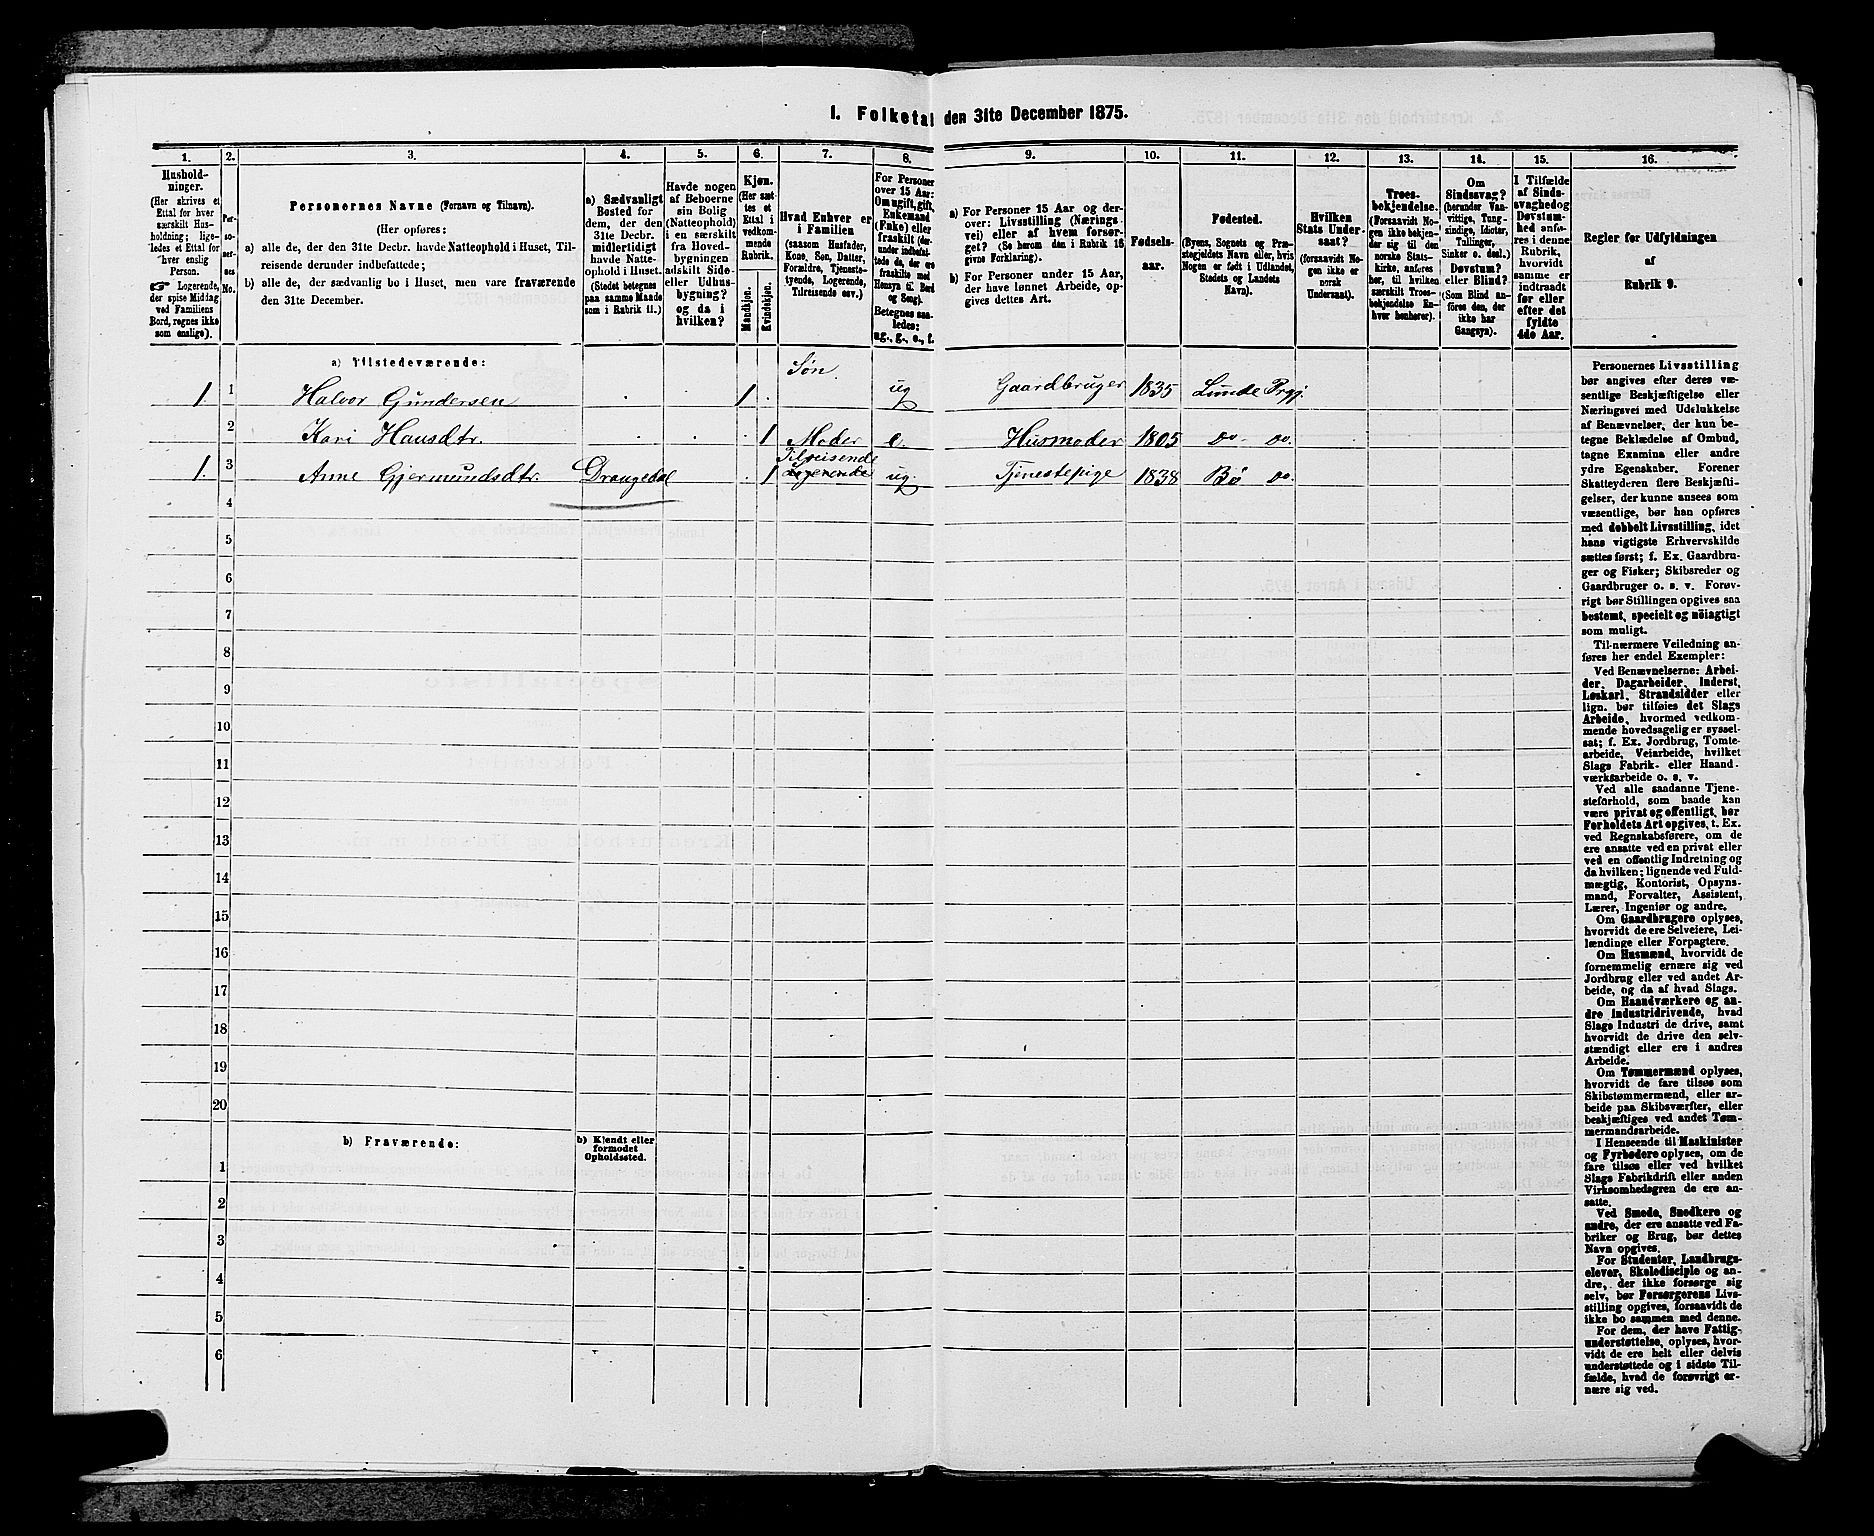 1. Folketal den 31te December 1875.
1. 2. 3. 4. 5. 6. 7. 8. 9. 10. 11. 12. 13. 14. 15. 16.
Hushold-
ninger.
(Her skrives et
Ettal for hver
særskilt Hus-
holdning; lige-
ledes et Ettal for
hver enslig
Person.
☞ Logerende,
der spise Middag
ved Familiens
Bord, regnes ikke
som enslige).
Per-
so-
ner-
nes
No.
Personernes Navne (Fornavn og Tilnavn).
(Her opføres:
a) alle de, der den 31te Decbr. havde Natteophold i Huset, Til-
reisende derunder indbefattede;
b) alle de, der sædvanlig bo i Huset, men vare fraværende
den 31te December.
a) Sædvanligt
Bosted for
dem, der den
31te Decbr.
midlertidigt
havde Natte-
ophold i Huset.
(Stedet betegnes
paa samme Maade
som i Rubrik 11.)
Havde nogen
af Beboerne
sin Bolig
(Natteophold)
i en særskilt
fra Hoved-
bygningen
adskilt Side-
eller Udhus-
bygning?
og da i
hvilken?
Kjøn.
(Her sæt-
tes et
Ettal i
vedkom-
mende
Rubrik.
Mandskjøn.
Kvindekjøn.
Hvad Enhver er
i Familien
(saasom Husfader,
Kone, Søn, Datter,
Forældre, Tjeneste-
tyende, Logerende,
Tilreisende osv.)
For Personer
over 15 Aar:
Om ugift, gift,
Enkemand
(Enke) eller
fraskilt (der-
under indbefat-
tede de, der ere
fraskilte med
Hensyn til Bord
og Seng).
Betegnes saa-
ledes:
ug., g., e., f.
a) For Personer 15 Aar og der-
over: Livsstilling (Nærings-
vei) eller af hvem forsør-
get? (Se herom den i Rubrik 16
givne Forklaring).
b) For Personer under 15 Aar,
der have lønnet Arbeide, op-
gives dettes Art.
Fødsels-
aar.
Fødested.
(Byens, Sognets og Præ-
stegjeldets Navn eller, hvis
Nogen er født i Udlandet,
Stedets og Landets
Navn).
Hvilken
Stats Under-
saat?
(forsaavidt No-
gen ikke er
norsk
Undersaat).
Troes-
bekjendelse.
(Forsaavidt No-
gen ikke bekjen-
der sig til den
norske Stats-
kirke, anføres
her, til hvilken
særskilt Troes-
bekjendelse En-
hver henhører).
Om
Sindssvag?
(herunder Van-
vittige, Tung-
sindige, Idioter,
Tullinger,
Sinker o. desl.)
Døvstum?
eller Blind?
(Som Blind an-
føres den, der
ikke har
Gangsyn).
I Tilfælde
af Sinds-
svaghed og
Døvstum-
hed anfø-
res i denne
Rubrik,
hvorvidt
samme er
indtraadt
før eller
efter det
fyldte
4de Aar.
Regler for Udfyldningen
af
Rubrik 9.
a) Tilstedeværende:
1 1 Halvor Gundersen 1 Søn ug Gaardbruger 1835 Lunde Prgj.
2 Kari Hansdtr. 1 Moder e. Husmoder 1805 Do Do.
1. 3 Anne Gjermundsdtr. Drangedal 1 Tilreisende Logerende ug. Tjenestepige 1838 Bø Do.
4
5
6
7
8
9
10
11
12
13
14
15
16
17
18
19
20
b) Fraværende:
b) Kjendt eller
formodet
Opholdssted.
1
2
3
4
5
6
Personernes Livsstilling
bør angives efter deres væ-
sentlige Beskjæftigelse eller
Næringsvei med Udelukkelse
af Benævnelser, der kun be-
tegne Beklædelse af Ombud,
tagne Examina eller andre
ydre Egenskaber. Forener
Skatteyderen flere Beskjæfti-
gelser, der kunne ansees som
væsentlige, bør han opføres
med dobbelt Livsstilling, idet
hans vigtigste Erhvervskilde
sættes først; f. Ex. Gaardbru-
ger og Fisker; Skibsreder og
Gaardbruger o. s. v. Forøv-
rigt bør Stillingen opgives saa
bestemt, specielt og nöiagtigt
som muligt.
Til nærmere Veiledning an-
føres her endel Exempler:
Ved Benævnelserne: Arbei-
der, Dagarbeider, Inderst,
Løskarl, Strandsidder eller
lign. bør tilføies det Slags
Arbeide, hvormed vedkom-
mende hovedsagelig er syssel-
sat; f. Ex. Jordbrug, Tomte-
arbeide, Veiarbeide, hvilket
Slags Fabrik- eller Haand-
værksarbeide o. s. v.
Ved alle saadanne Tjene-
steforhold, som baade kan
være privat og offentligt, bør
Forholdets Art opgives, t. Ex.
ved Regnskabsførere, om de
ere ansatte ved en privat eller
ved en offentlig Indretning og
da hvilken; lignende ved Fuld-
mægtig, Kontorist, Opsyns-
mand, Forvalter, Assistent,
Lærer, Ingeniør og andre.
Om Gaardbrugere oplyses,
hvorvidt de ere Selveiere, Lei-
lændinge eller Forpagtere.
Om Husmænd, hvorvidt de
fornemmelig ernære sig ved
Jordbrug eller ved andet Ar-
beide, og da af hvad Slags.
Om Haandværkere og an-
dre Industridrivende, hvad
Slags Industri de drive, samt
hvorvidt de drive den selv-
stændigt eller ere i andres
Arbeide.
Om Tømmermænd oplyses,
hvorvidt de fare tilsøs som
Skibstømmermænd, eller ar-
beide paa Skibsværfter, eller
beskjæftiges ved andet Tøm-
mermandsarbeide.
I Henseende til Maskinister
og Fyrbødere oplyses, om de
fare tilsøs eller ved hvilket
Slags Fabrikdrift eller anden
Virksomhedsgren de ere an-
satte.
Ved Smede, Snedkere og
andre, der ere ansatte ved Fa-
briker og Brug, bør dettes
Navn opgives.
For Studenter, Landbrugs-
elever, Skoledisciple og an-
dre, der ikke forsørge sig
selv, bør Forsørgerens Livs-
stilling opgives, forsaavidt de
ikke bo sammen med denne.
For dem, der have Fattig-
understøttelse, oplyses, hvor-
vidt de ere helt eller delvis
understøttede og i sidste Til-
fælde, hvad de forøvrigt er-
nære sig ved.